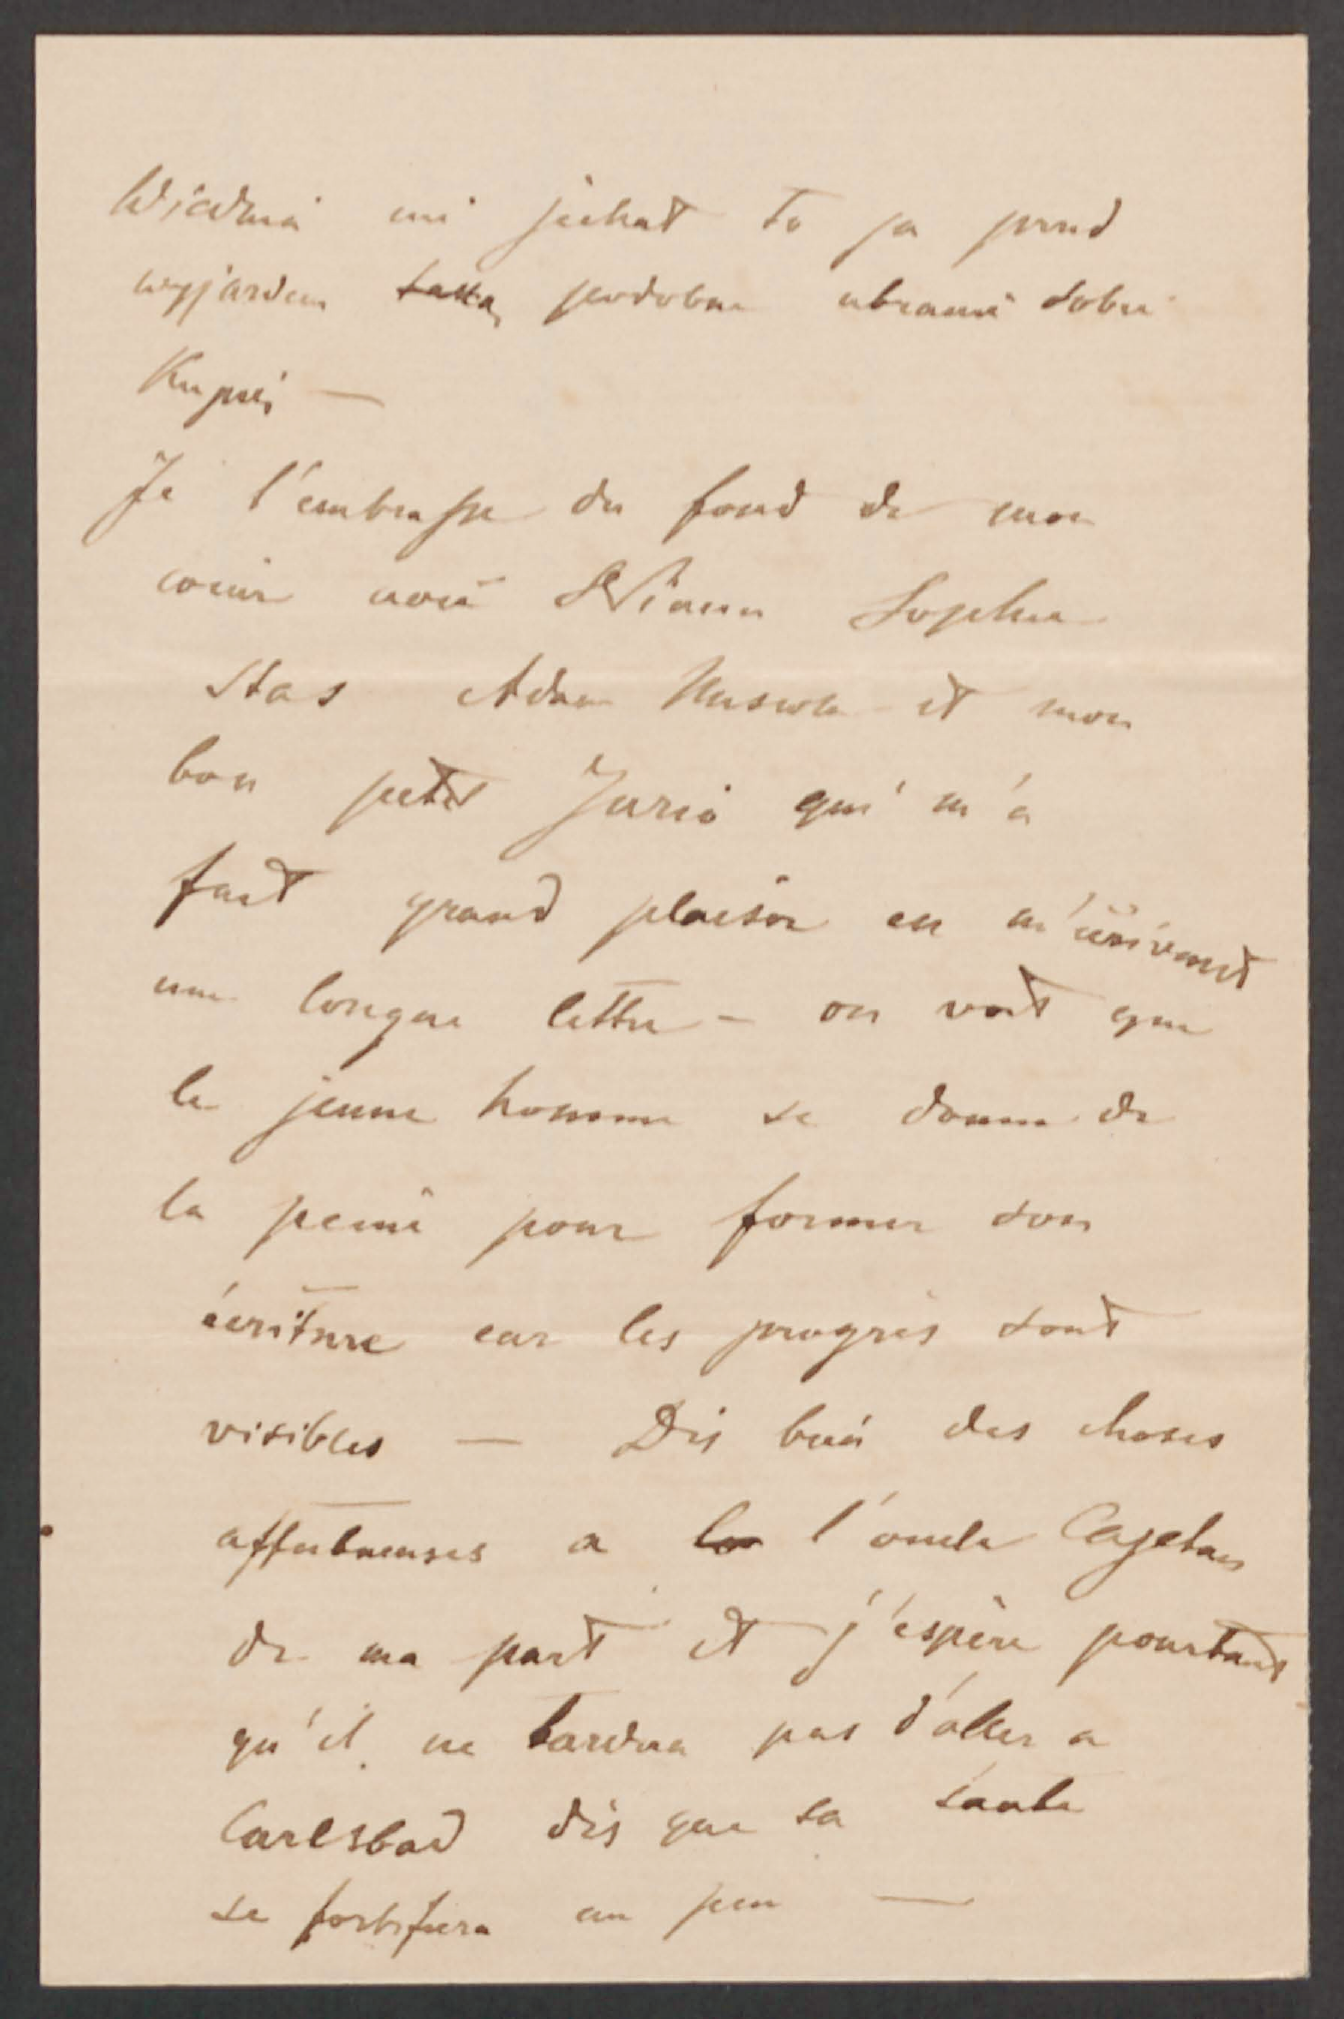 Wiednia mi jechat to ja przed
wyjazdem taka podobne ubranie sobie
Kupię —
Je t'embrasse du fond de mon
coeur Sophie
Stas Adam et mon
bon petit Jurio qui m'a
fait grand plaisir en m'écrivant
une longue lettre — on voit que
le jeune homme se donne de
la peine pour former son
écriture car les progrès sont
visibles — Dis bien des choses
affectueuses a l'oncle Cajetan
de ma part et j'espère pourtant
qu'il ne tardera pas d'aller a
Carlsbad dès que sa santé
se fortifiera un peu —